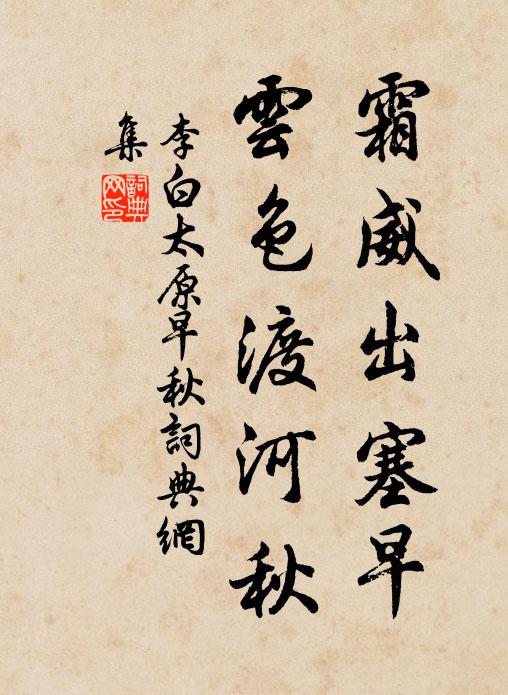 霜威出塞早
雲色渡河秋
李白太原早秋詞典網
集
詞典
网印